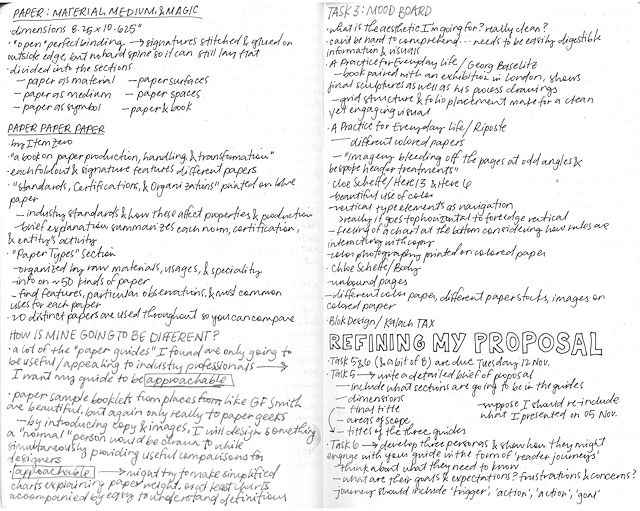 PAPER: MATERIAL, MEDIUM, & MAGIC
·dimensions 8.25 x 10.625"
·"open" perfect binding → signatures stitched & glued on
outside edge, but no hard spine so it can still lay flat
·divided into the sections
– paper as material – paper surfaces
– paper as medium – paper spaces
– paper as symbol – paper & book
PAPER PAPER PAPER
·by Item Zero
·"a book on paper production, handling & transformation"
·each foldout & signature features different papers
·"Standards, Certifications, & Organizations" printed on blue
paper
– industry standards & how these affect properties & production
– brief explanation summarizes each norm, certification,
& entity's activity
·"Paper Types" section
– organized by raw materials, usages, & speciality
– info on ~50 kinds of paper
– find features, particular observations, & most common
uses for each paper
·20 distinct papers are used throughout so you can compare
HOW IS MINE GOING TO BE DIFFERENT?
·a lot of the "paper guides" I found are only going to
be useful/appealing to industry professionals →
I want my guide to be approachable
·paper sample booklets from places from like GF Smith
are beautiful, but again only really to paper geeks
– by introducing copy & images, I will design something
a "normal" person would be drawn to while
simultaneously providing useful comparisons for
designers
·approachable → might try to make simplified
charts explaining paper weight, or at least charts
accompanied by easy to understand definitions
TASK 3: MOOD BOARD
·what is the aesthetic I'm going for? really clean?
·can't be hard to comprehend... needs to be easily digestible
information & visuals
·A Practice for Everyday Life / Georg Baselitz
– book paired with an exhibition in London, shows
final sculptures as well as his process drawings
– grid structure & folio placement make for a clean
yet engaging visual
·A Practice for Everyday Life / Riposte
– different colored papers
– "imagery bleeding off the pages at odd angles &
bespoke header treatments"
·Chloe Scheffe / Here 13 & Here 6
– beautiful use of color
– vertical type elements as navigation
– really it goes top horizontal to foredge vertical
– feeling of a chart at the bottom considering how rules are
interacting with copy
– color photography printed on colored paper
·Chloe Scheffe / Body
– unbound pages
– different color paper, different paper stocks, images on
colored paper
·Blok Design / Kalach TAX
REFINING MY PROPOSAL
·Task 5 & 6 (& a bit of 8) are due Tuesday 12 Nov.
·Task 5 → write a detailed brief of proposal
– include what sections are going to be in the guides
– dimensions
– final title
– areas of scope
– titles of the three guides
– suppose I should re-include
what I presented on 05 Nov.
·Task 6 → develop three personas & show how they might
engage with your guide in the form of 'reader journeys'
– think about what they need to know
– what are their goals & expectations? frustrations & concerns?
– journey should include 'trigger', 'action', 'action', 'goal'